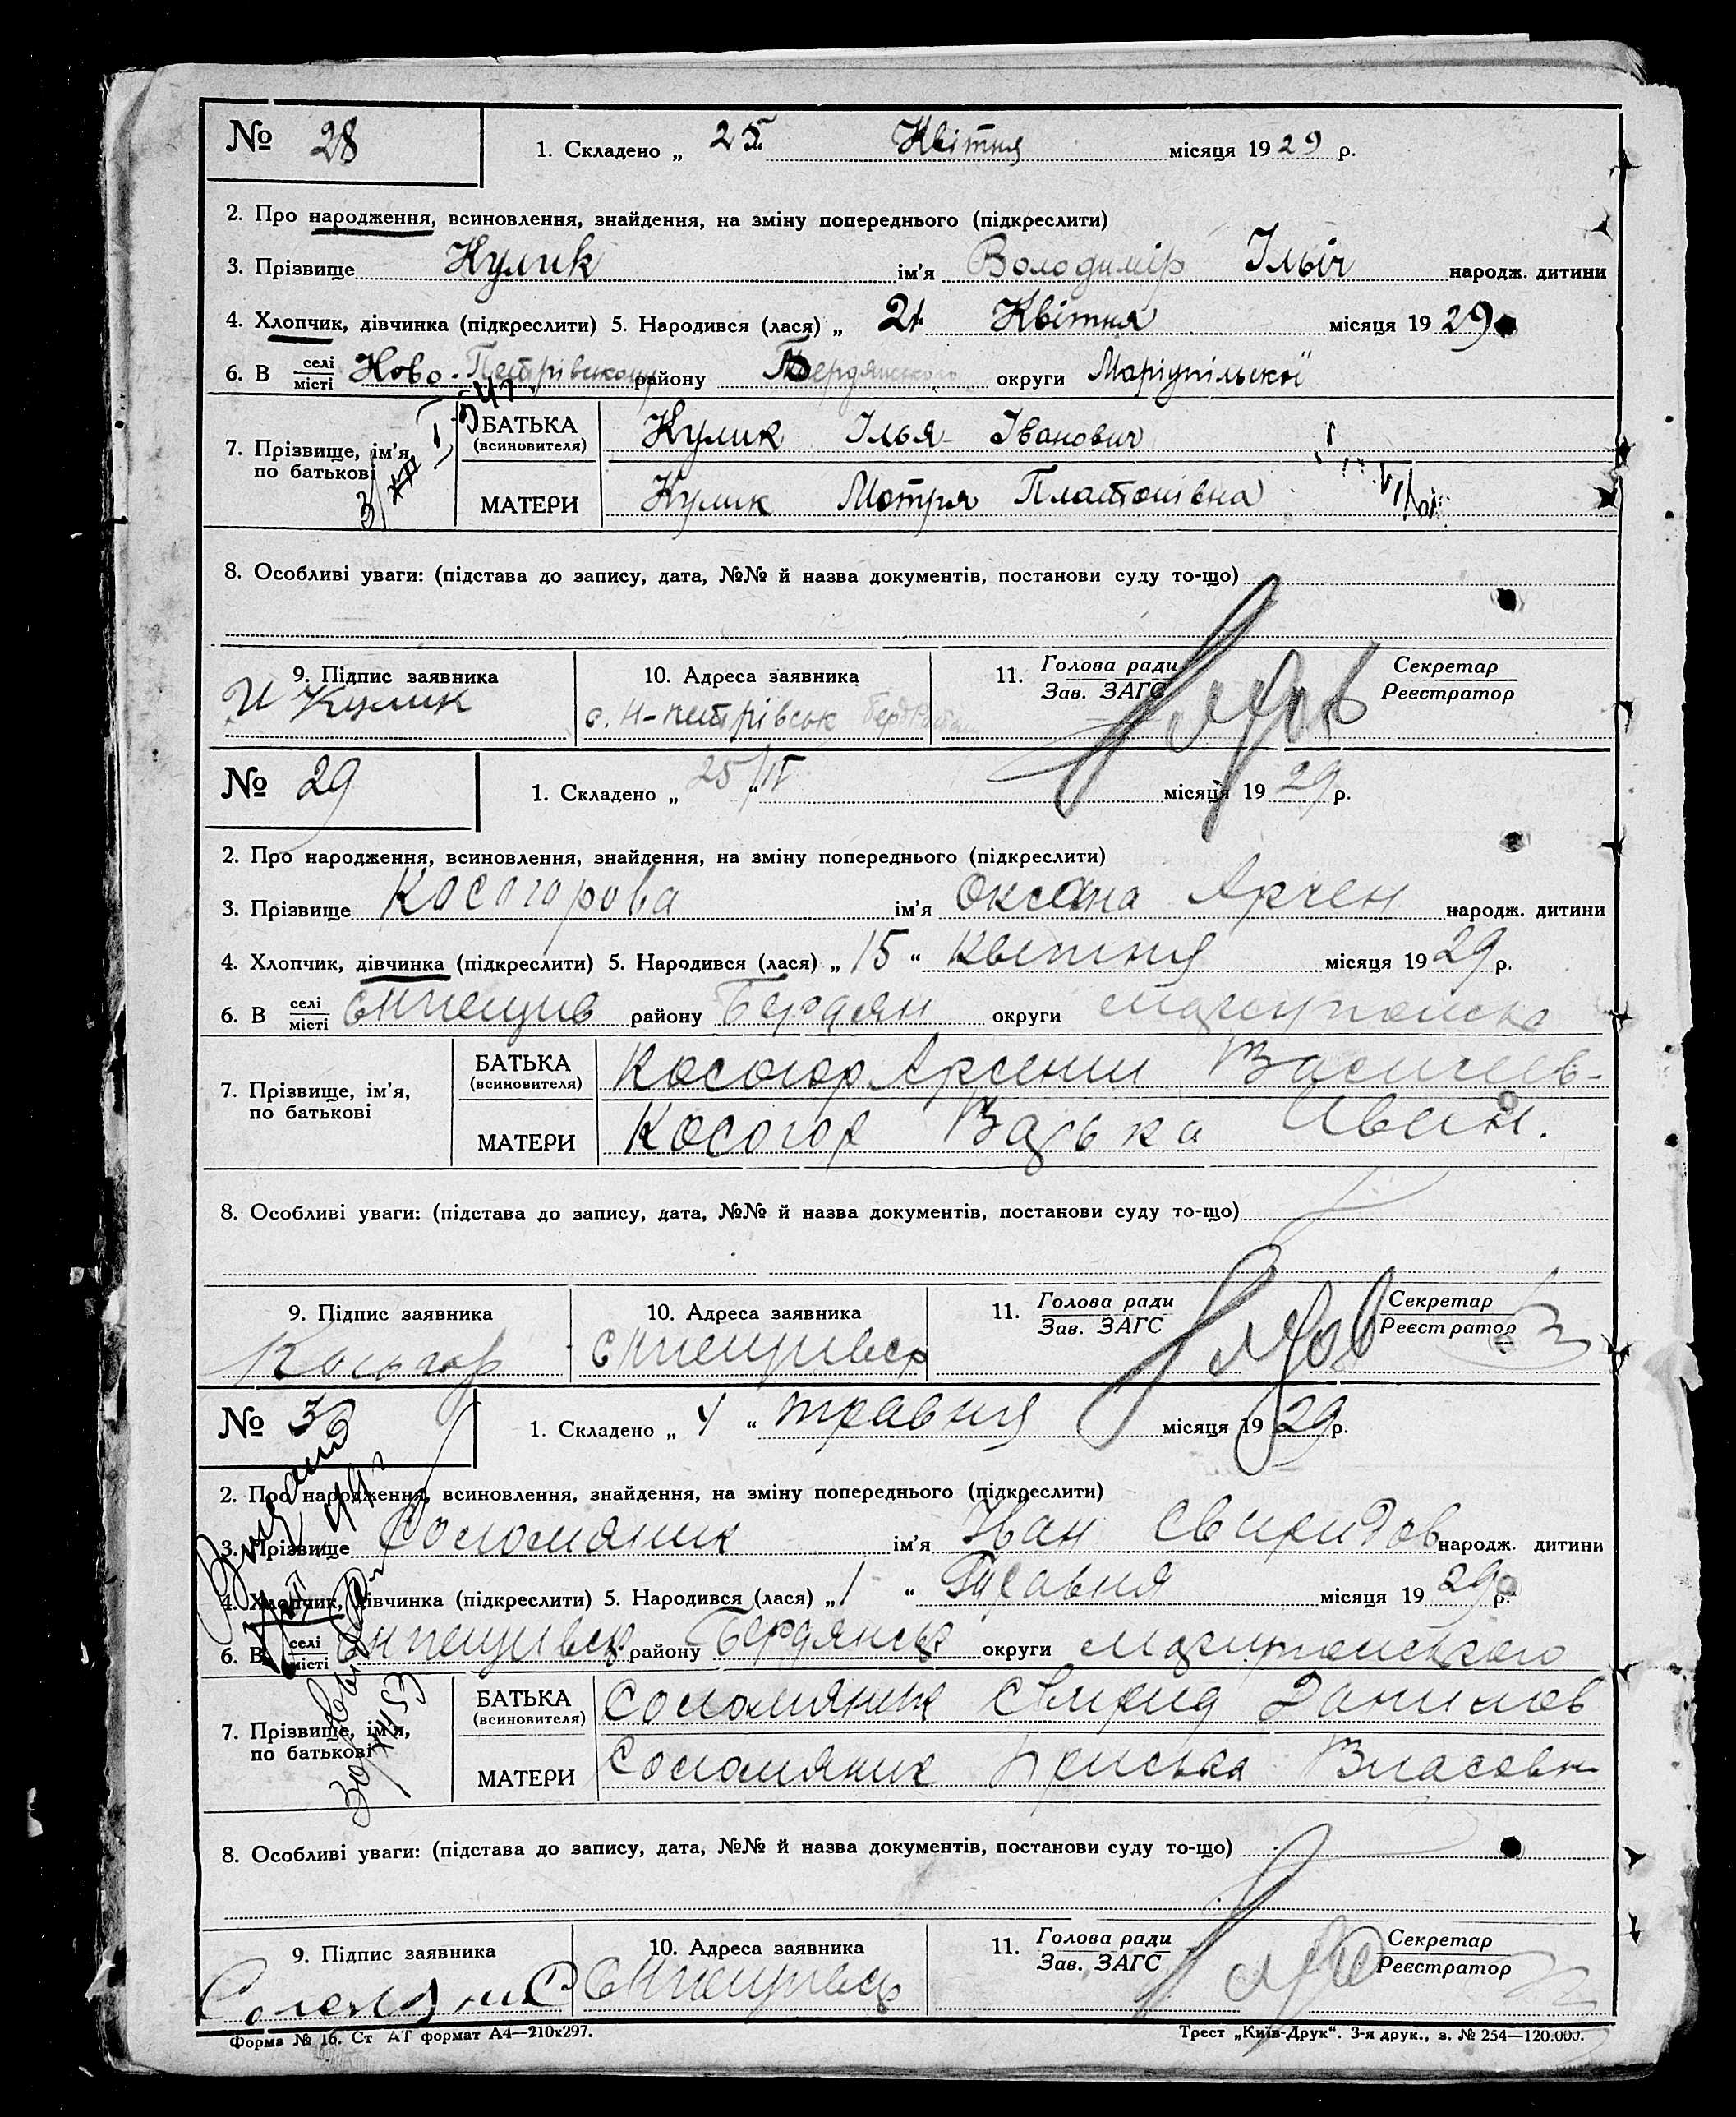 № 28
1. Складено „ 25 Квітня місяця 1929 р.
2. Про народження, всиновлення, знайдення, на зміну попереднього (підкреслити)
3. Прізвище Кулик ім'я Володимір Ільіч народж. дитини
4. Хлопчик, дівчинка (підкреслити) 5. Народився (лася) „ 21 Квітня місяця 1929
6. В селі місті Ново-Петрівському району Бердянського округи Маріупільскої
7. Прізвище, ім'я, по батькові
БАТЬКА (всиновителя) Кулик Ілья Іванович
МАТЕРИ Кулик Мотря Платонівна
8. Особливі уваги: (підстава до запису, дата, №№ й назва документів, постанови суду то-що)
9. Підпис заявника
10. Адреса заявника
11. Голова ради Зав. ЗАГС
Секретар Реєстратор
И Кулик
с. Н-петрівськ
№ 29
1. Складено „ 25/IV “ місяця 1929 р.
2. Про народження, всиновлення, знайдення, на зміну попереднього (підкреслити)
3. Прізвище Косогорова ім'я Оксана Арсен народж. дитини
4. Хлопчик, дівчинка (підкреслити) 5. Народився (лася) „ 15 “ квитня місяця 1929 р.
6. В селі місті району Бердян округи
7. Прізвище, ім'я, по батькові
БАТЬКА (всиновителя) Косогор Арсении Василев-
МАТЕРИ Косогор Варька Иван.
8. Особливі уваги: (підстава до запису, дата, №№ й назва документів, постанови суду то-що)
9. Підпис заявника
10. Адреса заявника
11. Голова ради Зав. ЗАГС
Секретар Реєстратор
Косогор
№ 30
1. Складено „ 4 “ травня місяця 1929 р.
2. Про народження, всиновлення, знайдення, на зміну попереднього (підкреслити)
3. Прізвище Соломяник ім'я Иван Свиридов народж. дитини
4. Хлопчик, дівчинка (підкреслити) 5. Народився (лася) „ 1 “ Травня місяця 1929 р.
6. В селі місті району Бердянськ округи
7. Прізвище, ім'я, по батькові
БАТЬКА (всиновителя) Соломяник Свирид Данилов
МАТЕРИ Соломяник Приська Власовн
8. Особливі уваги: (підстава до запису, дата, №№ й назва документів, постанови суду то-що)
9. Підпис заявника
10. Адреса заявника
11. Голова ради Зав. ЗАГС
Секретар Реєстратор
Форма № 16. Ст АТ формат А4—210х297.
Трест „Київ-Друк“. 3-я друк., з. № 254—120.000.